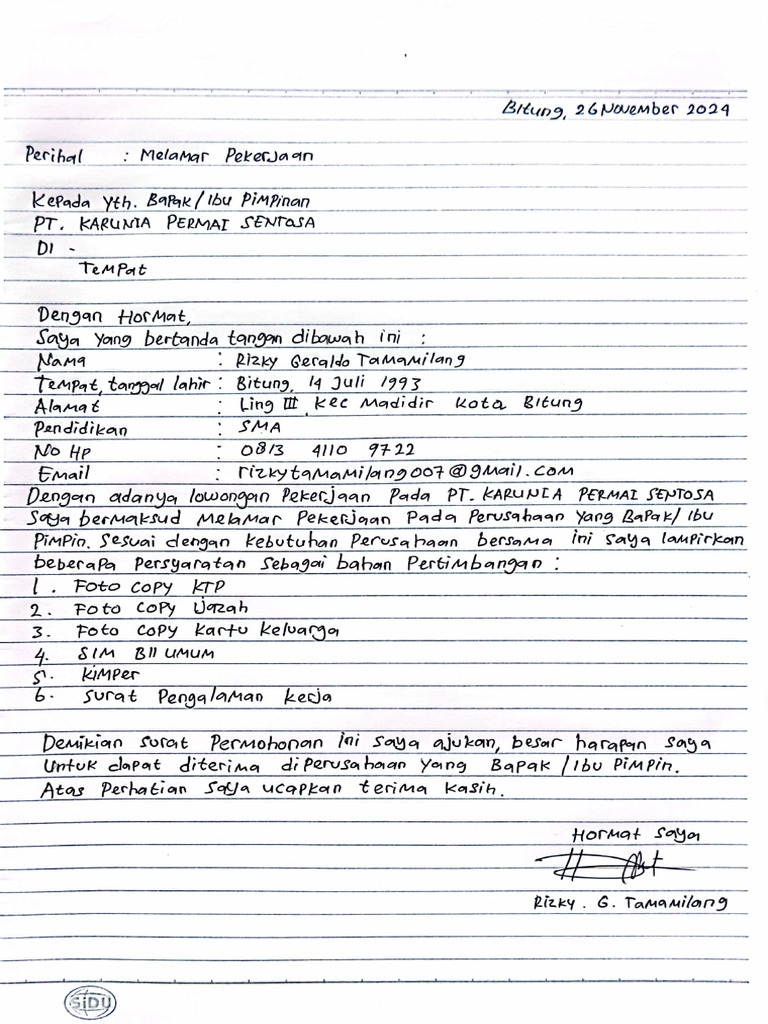 Bitung, 26 November 2024
Perihal : Melamar Pekerjaan
Kepada Yth. Bapak/Ibu Pimpinan
PT. KARUNIA PERMAI SENTOSA
DI -
Tempat
Dengan Hormat,
Saya yang bertanda tangan dibawah ini :
Nama : Rizky Geraldo Tamamilang
Tempat, tanggal lahir : Bitung, 14 Juli 1993
Alamat : Ling III, Kec Madidir Kota Bitung
Pendidikan : SMA
No HP : 0813 4110 9722
Email : rizkytamamilang007@gmail.com
Dengan adanya lowongan Pekerjaan Pada PT. KARUNIA PERMAI SENTOSA
Saya bermaksud Melamar Pekerjaan Pada Perusahaan Yang Bapak/Ibu
Pimpin. Sesuai dengan Kebutuhan Perusahaan bersama ini saya lampirkan
beberapa Persyaratan Sebagai bahan Pertimbangan :
1. Foto Copy KTP
2. Foto Copy Ijazah
3. Foto Copy Kartu Keluarga
4. SIM BII UMUM
5. Kimper
6. Surat Pengalaman Kerja
Demikian Surat Permohonan ini Saya ajukan, besar harapan saya
Untuk dapat diterima diPerusahaan Yang Bapak/Ibu Pimpin.
Atas Perhatian Saya ucapkan terima kasih.
Hormat Saya
Rizky. G. Tamamilang
SiDU